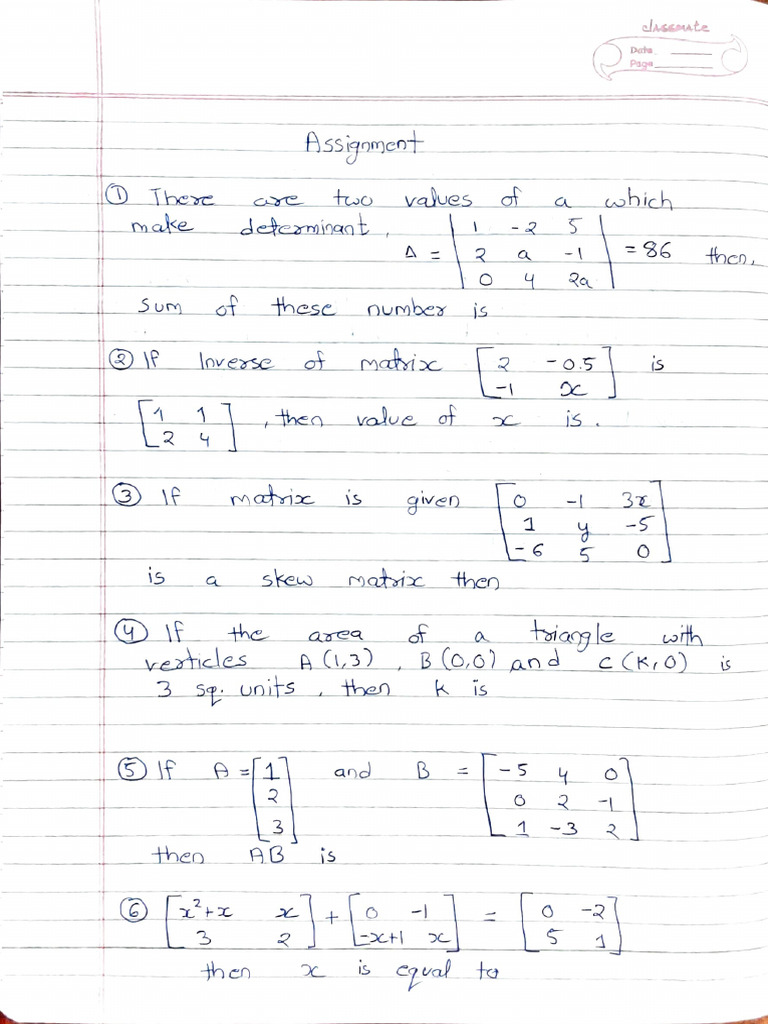 classmate
Date
Page
Assignment
① There are two values of a which
make determinant, Δ = | 1 -2 5 |
| 2 a -1 | = 86 then,
| 0 4 2a |
sum of these number is
② If Inverse of matrix [ 2 -0.5 ] is
[ -1 x ]
[ 1 1 ] , then value of x is.
[ 2 4 ]
③ If matrix is given [ 0 -1 3x ]
[ 1 y -5 ]
[ -6 5 0 ]
is a skew matrix then
④ If the area of a triangle with
verticles A (1,3) , B (0,0) and C (K,0) is
3 sq. units , then k is
⑤ If A = [ 1 ] and B = [ -5 4 0 ]
[ 2 ] [ 0 2 -1 ]
[ 3 ] [ 1 -3 2 ]
then AB is
⑥ [ x²+x x ] + [ 0 -1 ] = [ 0 -2 ]
[ 3 2 ] [ -x+1 x ] [ 5 1 ]
then x is equal to